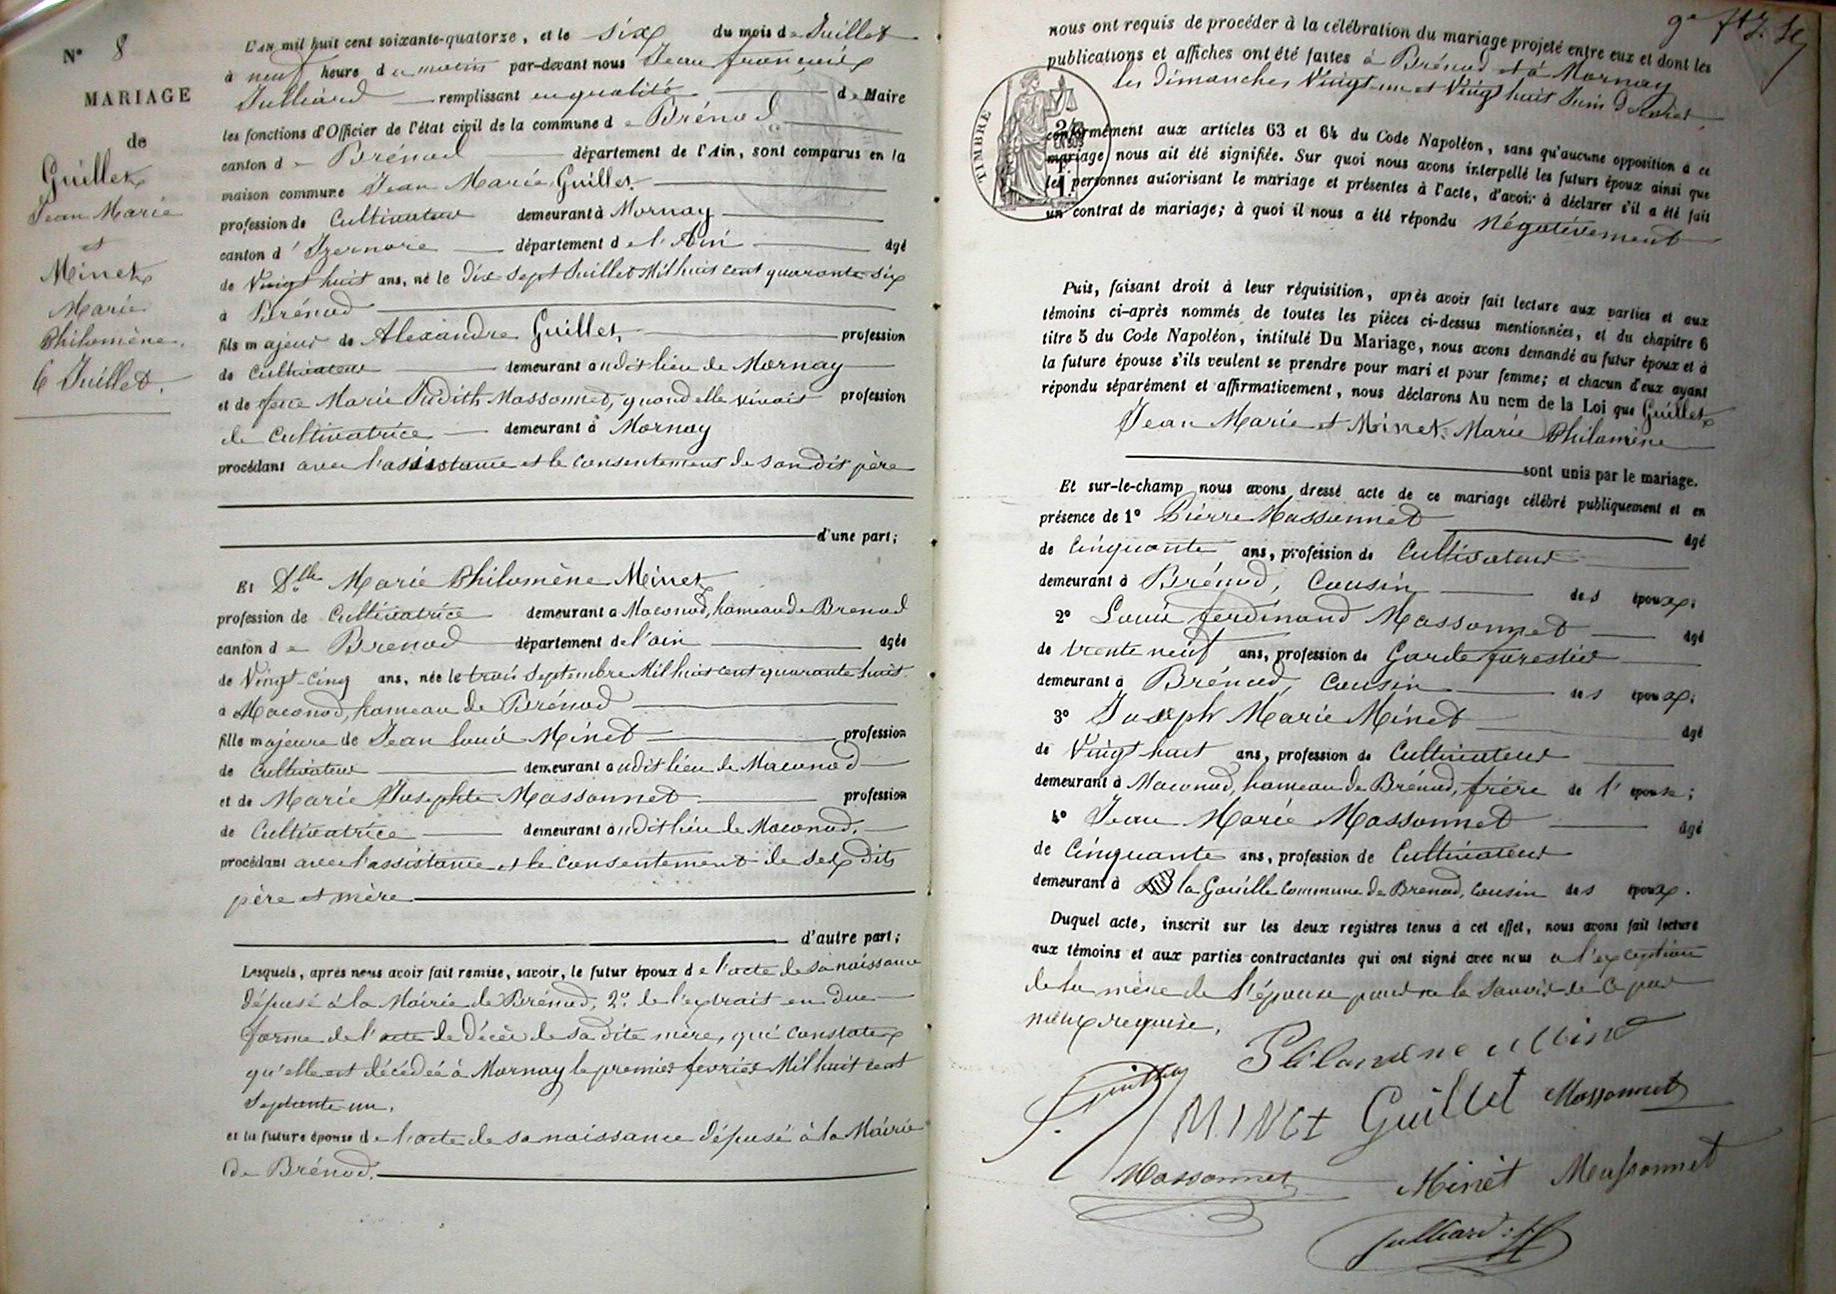 N° 8
MARIAGE
de
Guillet
Jean Marie
et
Minet
Marie
Philomène.
6 Juillet.
L'an mil huit cent soixante-quatorze, et le six du mois de Juillet
à neuf heure du matin par-devant nous Jean françois
Julliard remplissant en qualité de Maire
les fonctions d'Officier de l'état civil de la commune de Brénod
canton de Brénod département de l'Ain, sont comparus en la
maison commune Jean Marie Guillet
profession de Cultivateur demeurant à Mornay
canton d'Izernore département de l'Ain âgé
de Vingt huit ans, né le dix sept Juillet Mil huit cent quarante six
à Brénod
fils majeur de Alexandre Guillet, profession
de Cultivateur demeurant au dit lieu de Mornay
et de feue Marie Judith Massonnet, quand elle vivait profession
de Cultivatrice demeurant à Mornay
procédant avec l'assistance et le consentement de son dit père
d'une part;
Et Dlle Marie Philomène Minet
profession de Cultivatrice demeurant à Maconod, hameau de Brenod
canton de Brenod département de l'ain âgée
de Vingt-Cinq ans, née le trois Septembre Mil huit cent quarante huit
à Maconod, hameau de Brénod
fille majeure de Jean Louis Minet profession
de Cultivateur demeurant au dit lieu de Maconod
et de Marie Josephte Massonnet profession
de Cultivatrice demeurant au dit lieu de Maconod.
procédant avec l'assistance et le consentement de ses dits
père et mère
d'autre part;
Lesquels, après nous avoir fait remise, savoir, le futur époux de l'acte de sa naissance
déposé à la Mairie de Brénod, 2° de l'extrait en due
forme de l'acte de décès de sa dite mère, qui constate
qu'elle est décédée à Mornay le premier février Mil huit cent
septante-un.
et la future épouse de l'acte de sa naissance déposé à la Mairie
de Brénod.
nous ont requis de procéder à la célébration du mariage projeté entre eux et dont les
publications et affiches ont été faites à Brénod et à Mornay
les dimanches Vingt-un et Vingt huit Juin dernier
TIMBRE
conformément aux articles 63 et 64 du Code Napoléon, sans qu'aucune opposition à ce
mariage nous ait été signifiée. Sur quoi nous avons interpellé les futurs époux ainsi que
les personnes autorisant le mariage et présentes à l'acte, d'avoir à déclarer s'il a été fait
un contrat de mariage; à quoi il nous a été répondu Négativement
Puis, faisant droit à leur réquisition, après avoir fait lecture aux parties et aux
témoins ci-après nommés de toutes les pièces ci-dessus mentionnées, et du chapitre 6
titre 5 du Code Napoléon, intitulé Du Mariage, nous avons demandé au futur époux et à
la future épouse s'ils veulent se prendre pour mari et pour femme; et chacun d'eux ayant
répondu séparément et affirmativement, nous déclarons Au nom de la Loi que Guillet
Jean Marie et Minet Marie Philomène
sont unis par le mariage.
Et sur-le-champ nous avons dressé acte de ce mariage célébré publiquement et en
présence de 1° Pierre Massonnet âgé
de Cinquante ans, profession de Cultivateur
demeurant à Brénod, Cousin des époux;
2° Louis ferdinand Massonnet âgé
de trente neuf ans, profession de Garde forestier
demeurant à Brénod, Cousin des époux;
3° Joseph Marie Minet âgé
de Vingt huit ans, profession de Cultivateur
demeurant à Maconod, hameau de Brénod, frère de l'épouse;
4° Jean Marie Massonnet âgé
de Cinquante ans, profession de Cultivateur
demeurant à la Gouille Commune de Brenod, Cousin des époux.
Duquel acte, inscrit sur les deux registres tenus à cet effet, nous avons fait lecture
aux témoins et aux parties contractantes qui ont signé avec nous à l'exception
de la mère de l'épouse pour ne le savoir de ce par
nous requise.
Philomène Minet
Guillet
MINET Guillet Massonnet
Massonnet Minet Massonnet
Julliard